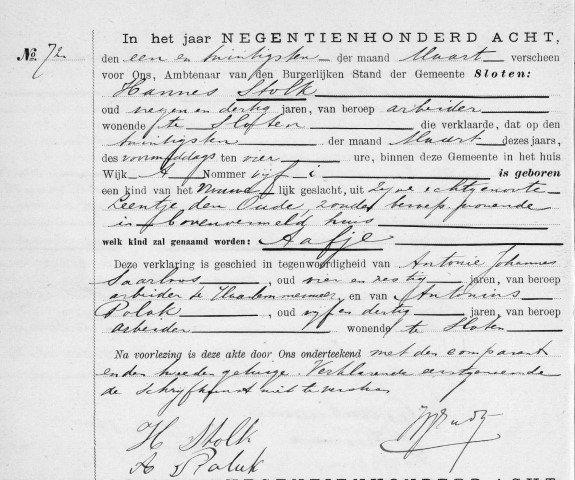 In het jaar NEGENTIENHONDERD ACHT,
No 72
den een en twintigsten der maand Maart verscheen
voor Ons, Ambtenaar van den Burgerlijken Stand der Gemeente Sloten:
Hannes Stolk
oud negen en dertig jaren, van beroep arbeider
wonende te Sloten die verklaarde, dat op den
twintigsten der maand Maart dezes jaars,
des voormiddags ten vier ure, binnen deze Gemeente in het huis
Wijk A Nommer vijf i is geboren
een kind van het vrouwe lijk geslacht, uit zijne echtgenoote
Leentje den Oude, zonder beroep, wonende
in bovenvermeld huis
welk kind zal genaamd worden: Aafje
Deze verklaring is geschied in tegenwoordigheid van Antonie Johannes
Saarloos, oud vier en zestig jaren, van beroep
arbeider te Haarlemmermeer en van Antonius
Polak, oud vijf en dertig jaren, van beroep
arbeider wonende te Sloten
Na voorlezing is deze akte door Ons onderteekend met den comparant
en den tweeden getuige. Verklarende eerstgenoemde
de schrijfkunst niet te verstaan
H Stolk
A Poluk